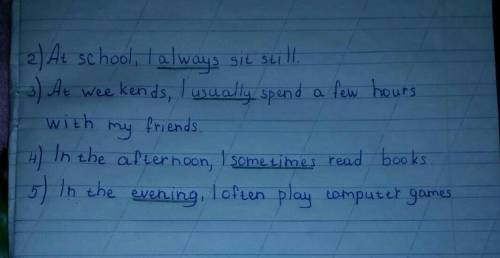 2) At school, I always sit still.
3) At weekends, I usually spend a few hours
with my friends.
4) In the afternoon, I sometimes read books
5) In the evening, I often play computer games